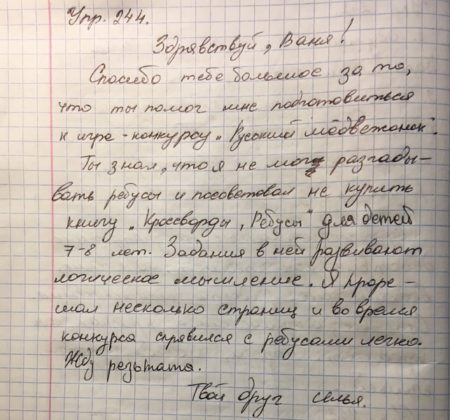 Упр. 244.
Здрявствуй, Ваня!
Спосибо тебе большое за то,
что ты помог мне подготовиться
к игре-конкурсу „Русский медвежонок".
Ты знал, что я не могу разгады-
вать ребусы и посоветовал не купить
книгу „Кроссворды, Ребусы" для детей
7-8 лет. Задания в ней развивают
логическое мышление. Я проре-
шал несколько страниц и во время
конкурса спрявился с ребусами легко.
Жду резьтата.
Твой друг селья.